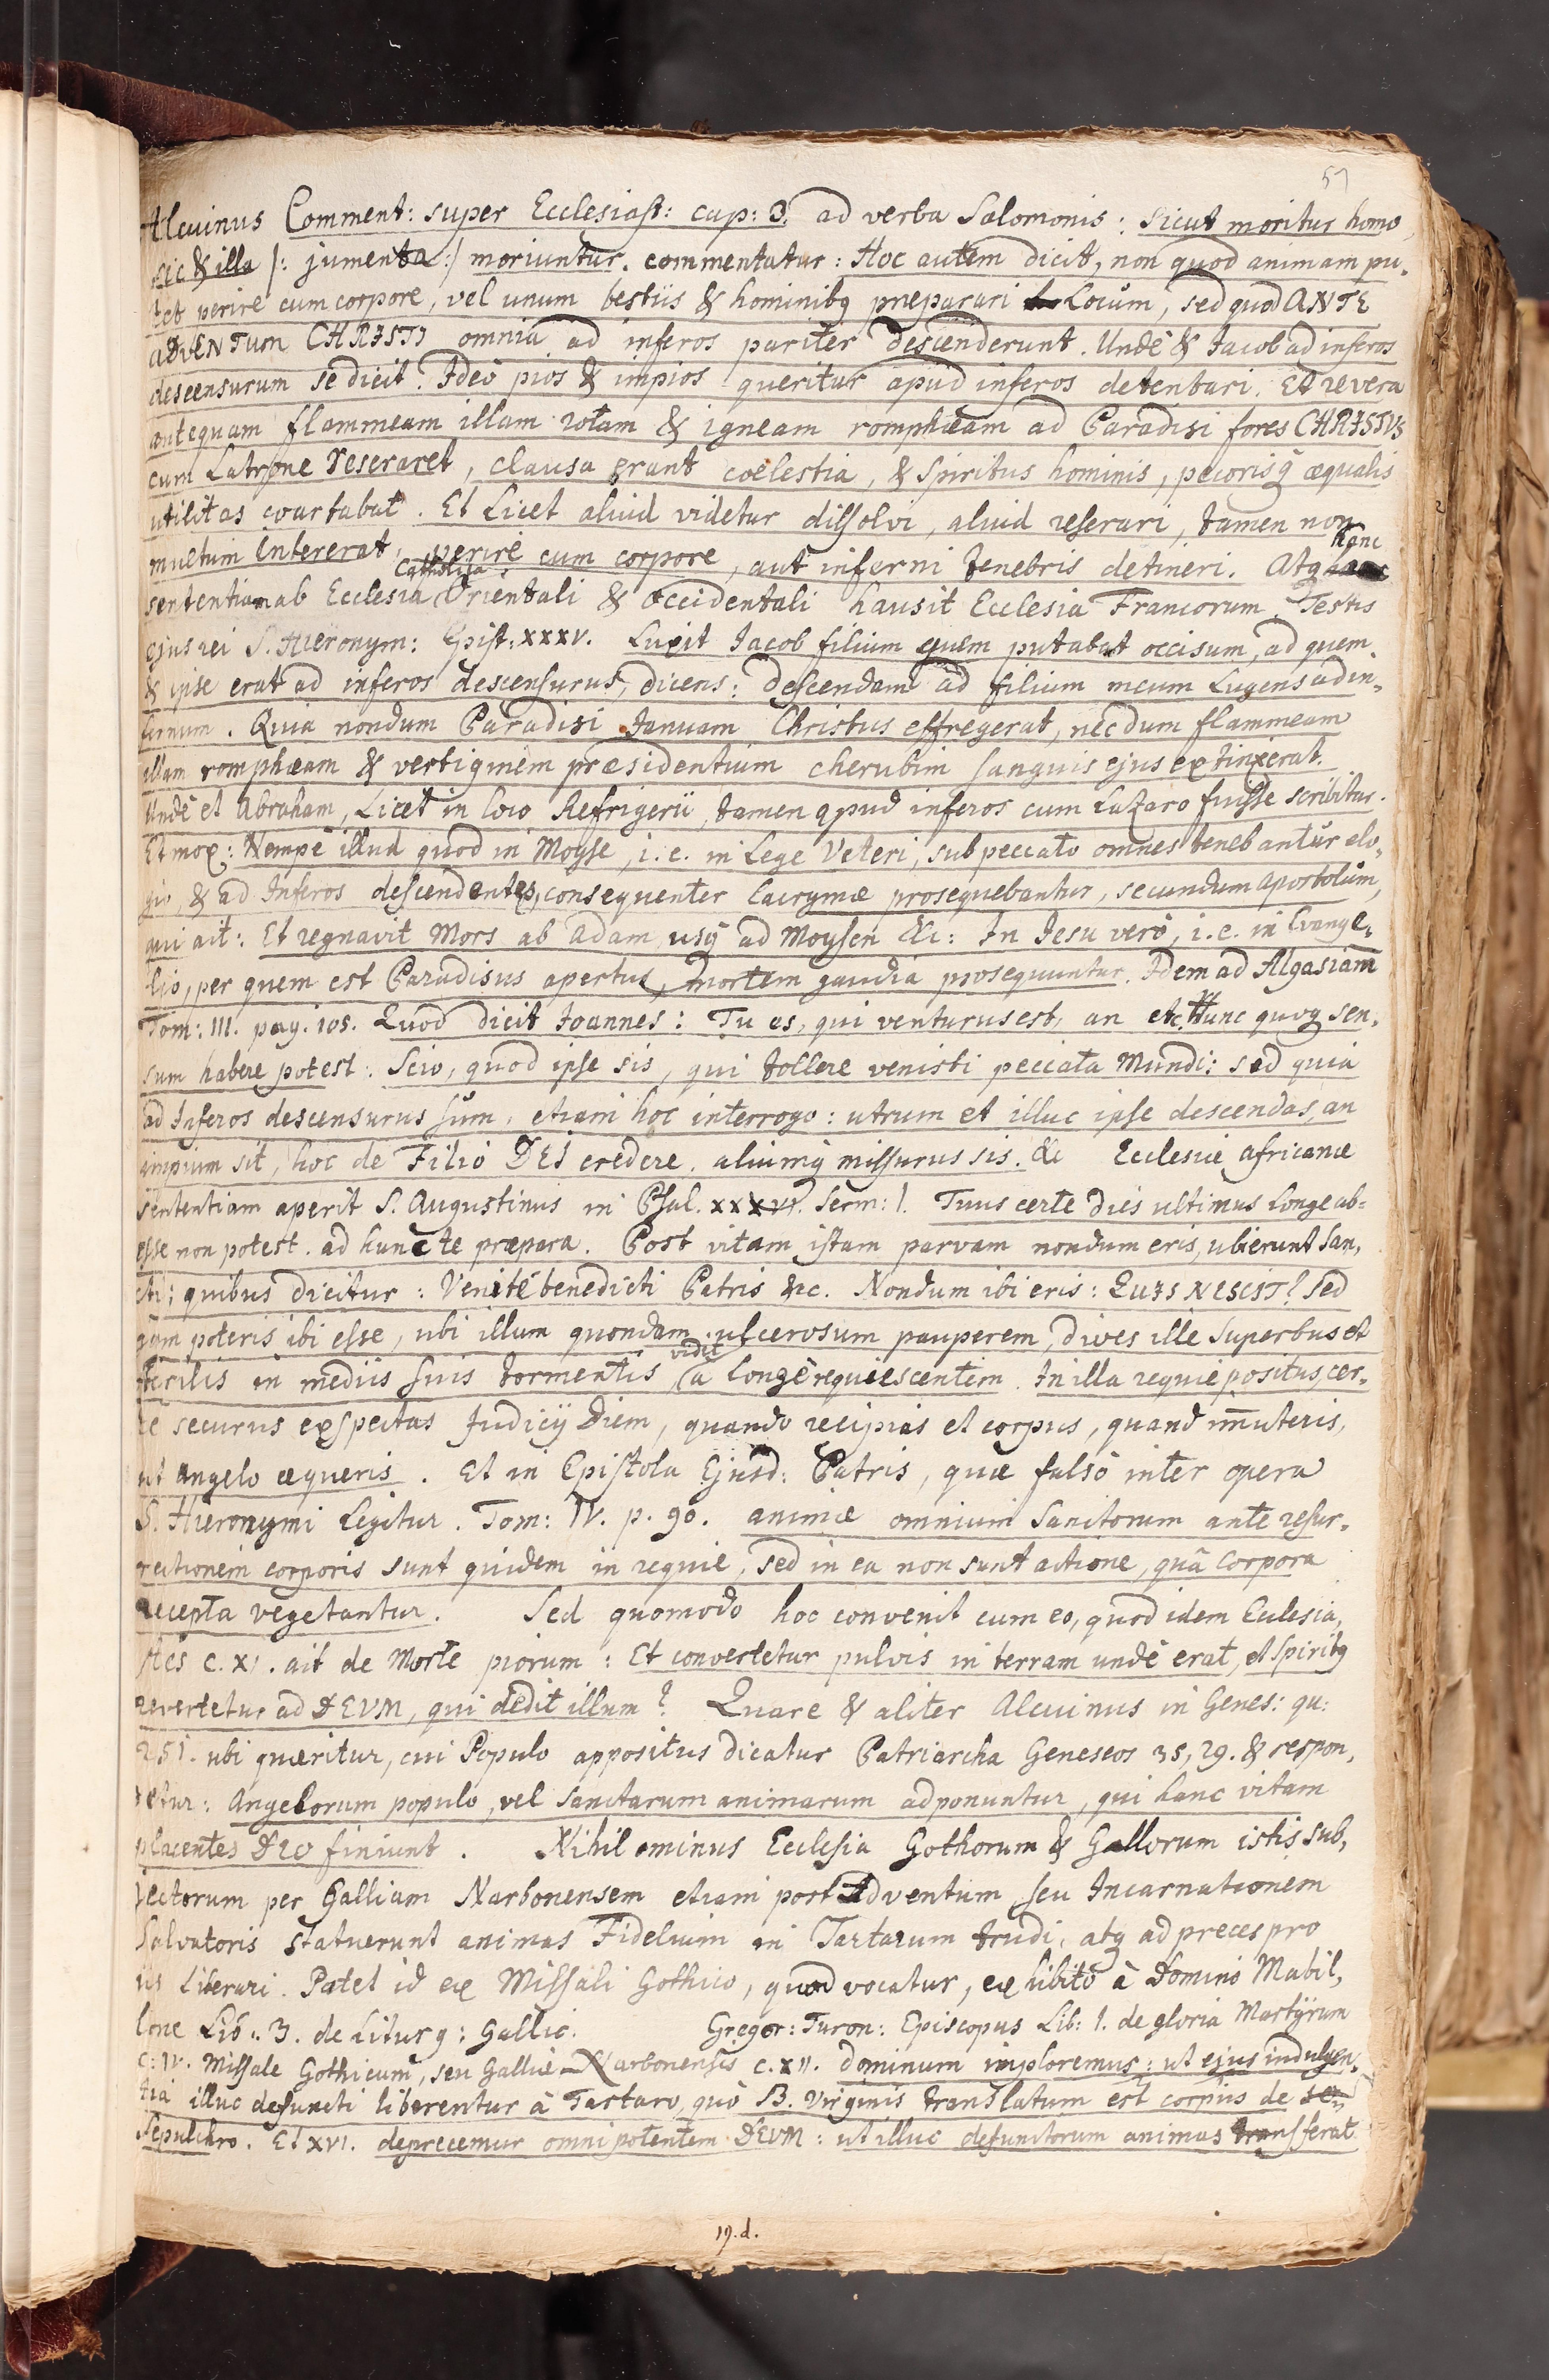 57
Alcuinus Comment: super Ecclesiast: cap: 3. ad verba Salomonis: Sicut moritur homo,
sic & illa /: jumenta :/ moriuntur. commentatur: Hoc autem dicit, non quod animam pu-
tet perire cum corpore, vel unum bestiis & hominibq preparari Locum, sed quod ANTE
ADVENTum CHRISTI omnia ad inferos pariter descenderunt. Unde & Jacob ad inferos
descensurum se dicit. Ideo pios & impios queritur apud inferos detentari. Et revera
antequam flammeam illam rotam & igneam romphæam ad Paradisi fores CHRISTVS
cum Latrone reseraret, clausa erant coelestia, & Spiritus hominis, pecorisq æqualis
utilitas coartabat. Et Licet aliud videtur dissolvi, aliud reserari, tamen non
multum intererat, perire cum corpore, aut inferni tenebris detineri. Atq hanc
sententiam ab Ecclesia Catholica Orientali & Occidentali hausit Ecclesia Francorum. Testis
ejus rei S. Hieronym: Epist: XXXV. Lugit Jacob filium quem putabat occisum, ad quem
& ipse erat ad inferos descensurus, dicens: descendam ad filium meum Lugens ad in-
fernum. Quia nondum Paradisi Januam Christus effregerat, necdum flammeam
illam romphæam & vertiginem præsidentium cherubim sanguis ejus extinxerat.
Unde et Abraham, Licet in loco Refrigerii, tamen apud inferos cum Lazaro fuisse scribitur.
Et mox: Nempe illud quod in Moyse, i. e. in Lege Veteri, sub peccato omnes tenebantur elo-
gio, & ad Inferos descendentes, consequenter lacrymæ prosequebantur, secundum Apostolum,
qui ait: Et regnavit Mors ab Adam usq ad Moysen &c: In Jesu vero, i. e. in Evange-
lio, per quem est Paradisus apertus, mortem gaudia prosequuntur. Idem ad Algasiam
Tom: III. pag. 105. Quod dicit Joannes: Tu es, qui venturus est, an etc. Hunc quoq sen-
sum habere potest: Scio, quod ipse sis, qui tollere venisti peccata Mundi: sed quia
ad Inferos descensurus sum, etiam hoc interrogo: utrum et illuc ipse descendas, an
impium sit, hoc de Filio DEI credere, aliumq missurus sis. &c Ecclesiæ Africanæ
sententiam aperit S. Augustinus in Psal. XXXVI. Serm: 1. Tuus certe dies ultimus longe ab-
esse non potest. ad hunc te præpara. Post vitam istam parvam nondum eris, ubi erunt San-
cti; quibus dicitur: Venite benedicti Patris &c. Nondum ibi eris: QuIS NESCIT? Sed
jam poteris ibi esse, ubi illum quondam ulcerosum pauperem, dives ille Superbus et
sterilis in mediis suis tormentis vidit à longè requiescentem. In illa requie positus, cer-
te securus exspectas Judicij Diem, quando recipias et corpus, quand immuteris,
ut angelo æqueris. Et in Epistola Ejusd: Patris, quæ falso inter opera
S. Hieronymi Legitur. Tom: IV. p. 90. animæ omnium Sanctorum ante resur-
rectionem corporis sunt quidem in requie, sed in ea non sunt actione, quâ Corpora
recepta vegetantur. Sed quomodo hoc convenit cum eo, quod idem Ecclesia-
stes C. XI. ait de Morte piorum: Et convertetur pulvis in terram unde erat, et Spiritq
revertetur ad DEVM, qui dedit illum? Quare & aliter Alcuinus in Genes: qu:
251. ubi quæritur, cui Populo appositus dicatur Patriarcha Geneseos 35, 29. & respon-
detur: Angelorum populo, vel Sanctarum animarum adponuntur, qui hanc vitam
placentes Deo finiunt. Nihil ominus Ecclesia Gothorum & Gallorum istis sub-
jectorum per Galliam Narbonensem etiam post Adventum seu Incarnationem
Salvatoris statuerunt animas Fidelium in Tartarum trudi, atq ad preces pro
iis Liberari. Patet id ex Missali Gothico, quod vocatur, exhibito à Domino Mabil-
lone Lib.. 3. de Liturg: Gallic. Greger: Turon: Episcopus Lib: 1. de gloria Martyrum
C: IV. Missale Gothicum, seu Galliæ Narbonensis C. XII. dominum imploremus: ut ejus indulgen-
tia illuc defuncti liberentur à Tartaro, quò B. Virginis translatum est corpus de se-
Sepulchro. Et XVI. deprecemur omnipotentem DEVM: ut illuc defunctorum animas transferat
19.d.